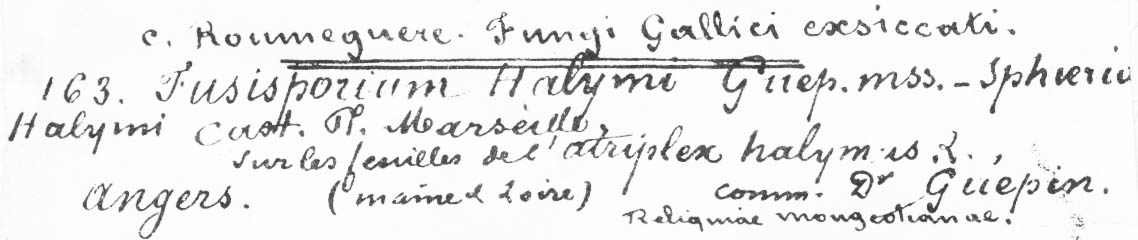 C. Roumeguere. Fungi Gallici exsiccati.
163. Fusisporium Halymi Guep. mss. - Sphæria
Halymi Cast. Pl. Marseille,
sur les feuilles de l'atriplex halymus L.,
Angers. (maine & Loire) comm. Dr Guepin.
Reliquiae mougeotianae.